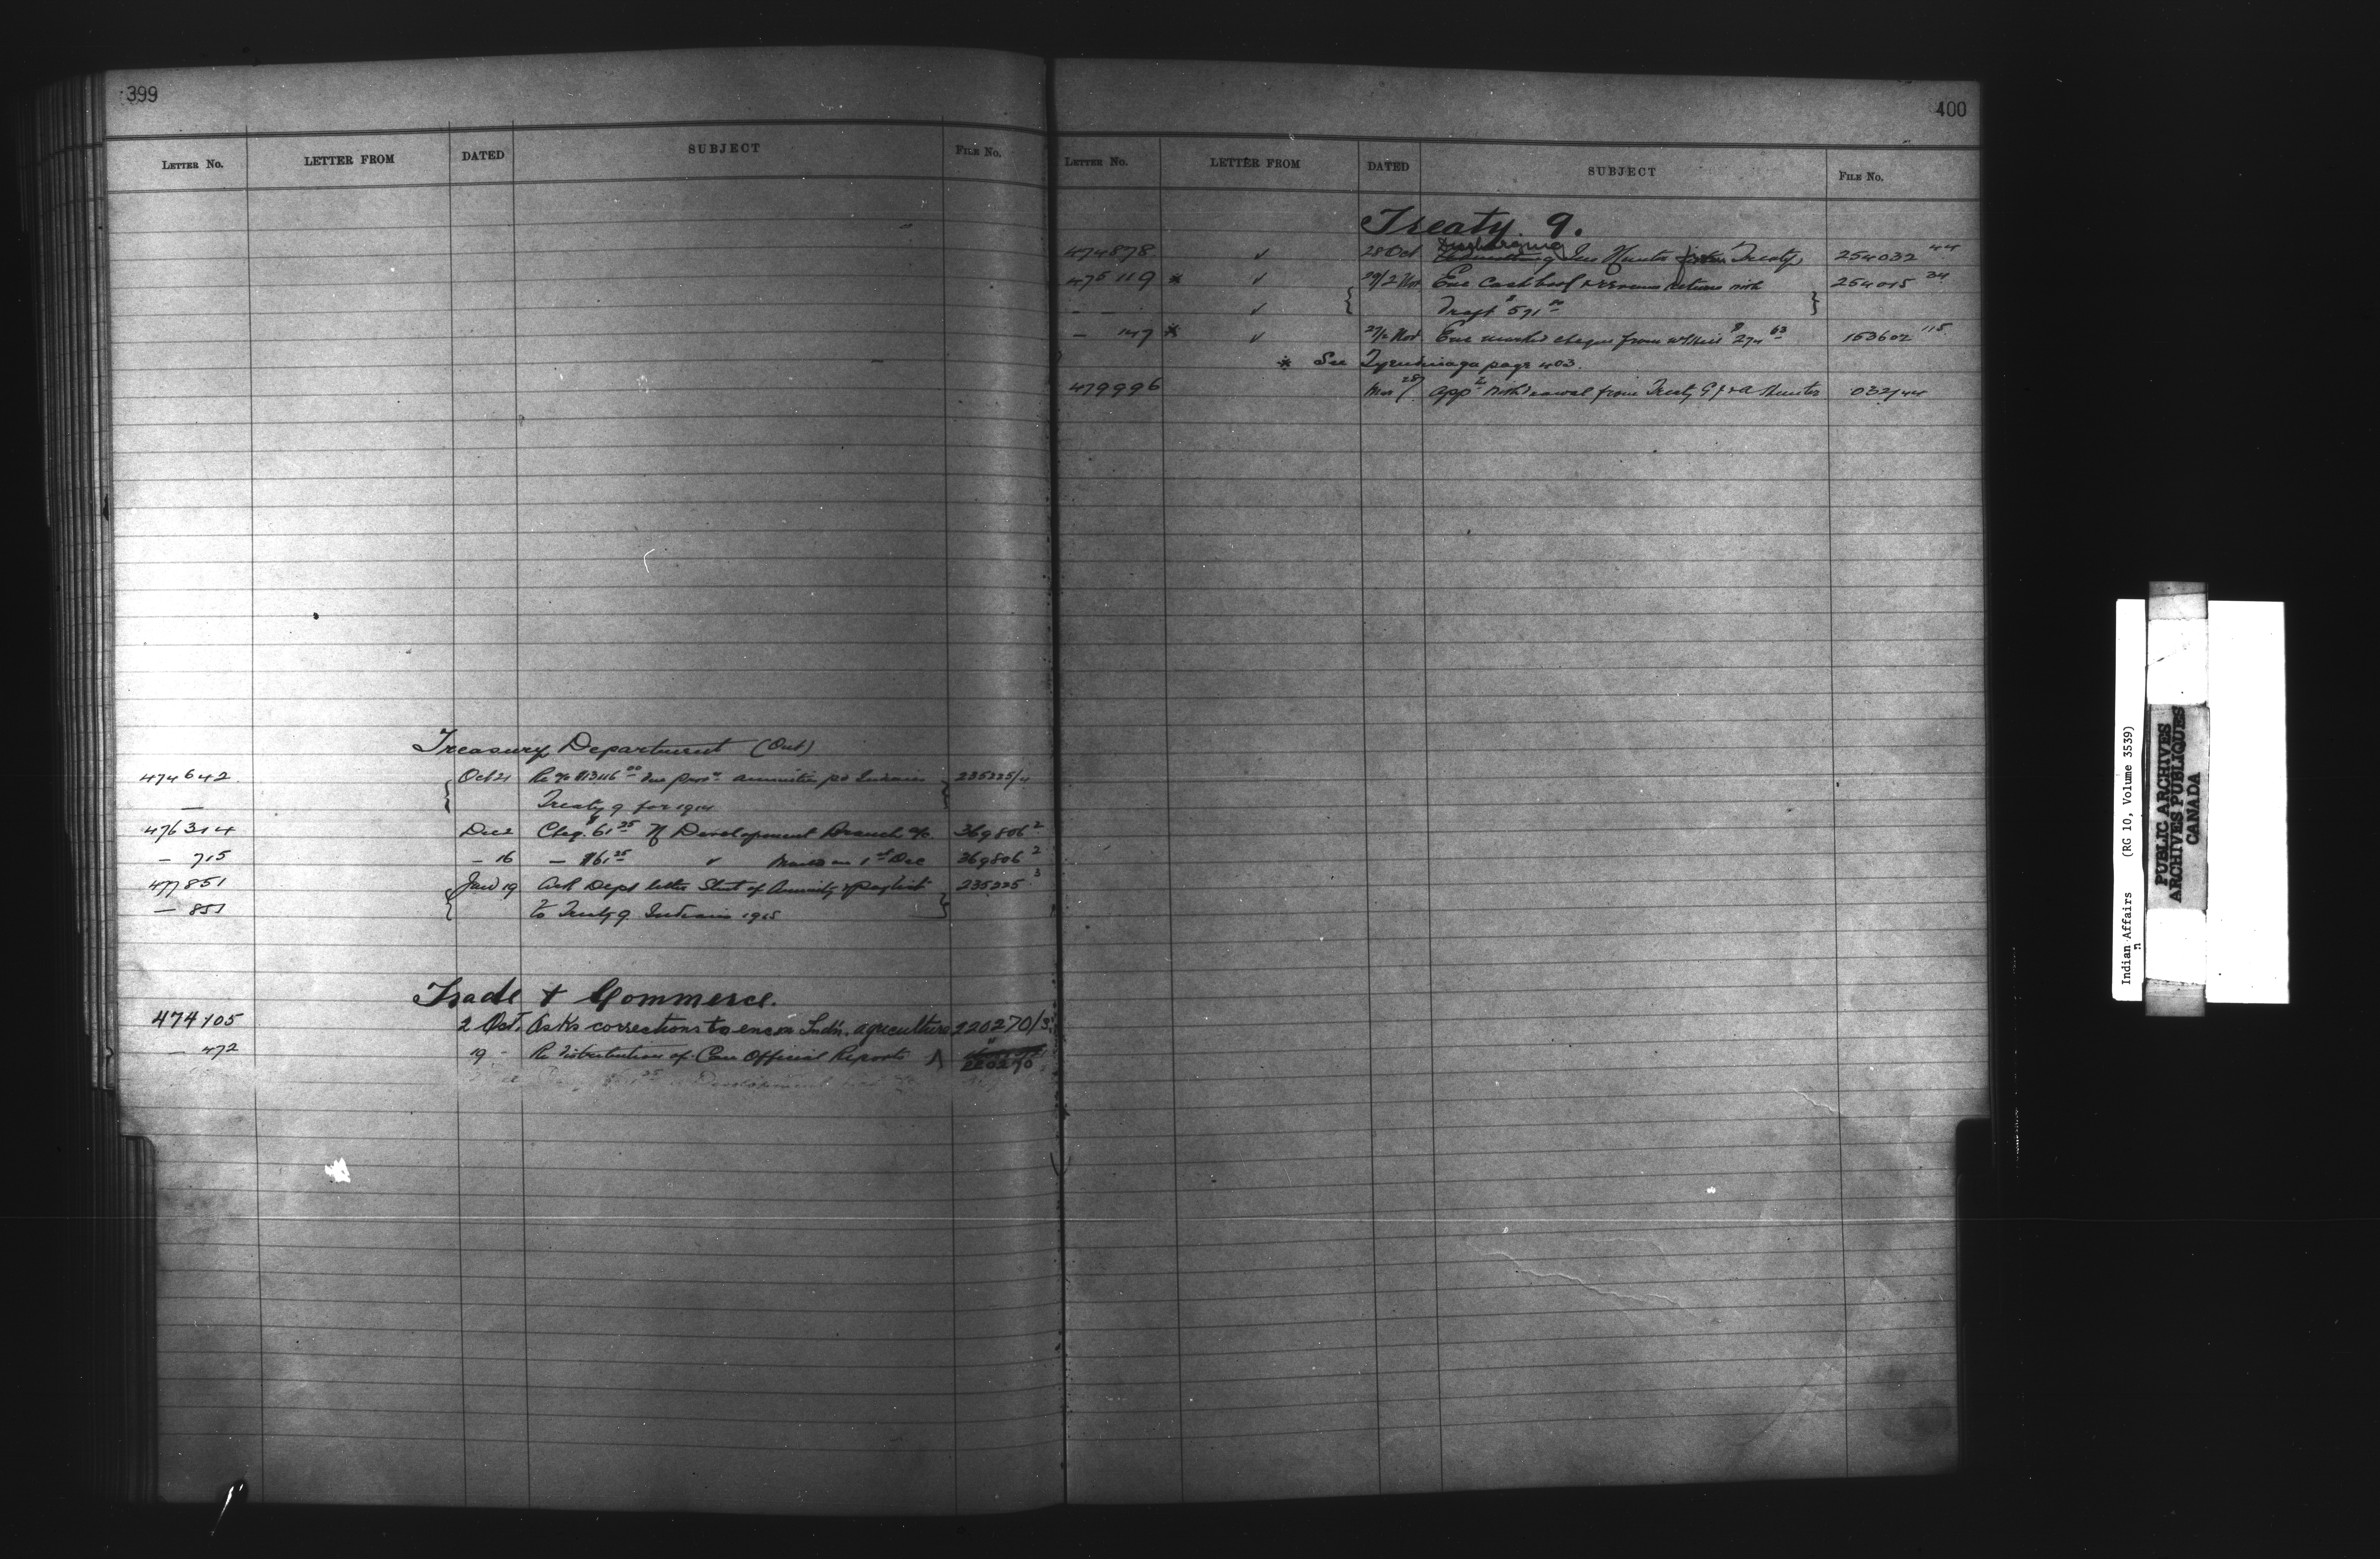 399
LETTER No. LETTER FROM DATED SUBJECT FILE No.
Treasury Department (Out)
474642 Oct 21 Re % $13116.00 due Indians 235225/4
— Treaty 9 for 1914
476314 Dec 2 Cheq. $61.25 Development Branch % 369806 2
— 715 – 16 — $61.25 1st Dec 369806 2
477851 Jan 19 Ack Dept letter Stmt of Annuity paylist 235225 3
— 851 to Treaty 9 Indians 1915
Trade + Commerce.
474105 2 Oct. Asks corrections to enc Indn. agriculture 220270/3
— 472 19 - Re distribution of Can Official Reports 220270
400
LETTER No. LETTER FROM DATED SUBJECT FILE No.
Treaty. 9.
Discharging
474878 ✓ 28 Oct Jas Hunter from Treaty 254032 44
475119 * ✓ 29/2 Nov Enc Cash book returns with 254015 34
– – ✓ Draft $591.00
– 147 * ✓ 27/2 Nov Enc marked cheque from $274.63 153602 115
* See Tyendinaga page 403.
479996 Mar 28/ App withdrawal from Treaty 9 Hunter 032/44
Indian Affairs (RG 10, Volume 3539)
PUBLIC ARCHIVES
ARCHIVES PUBLIQUES
CANADA